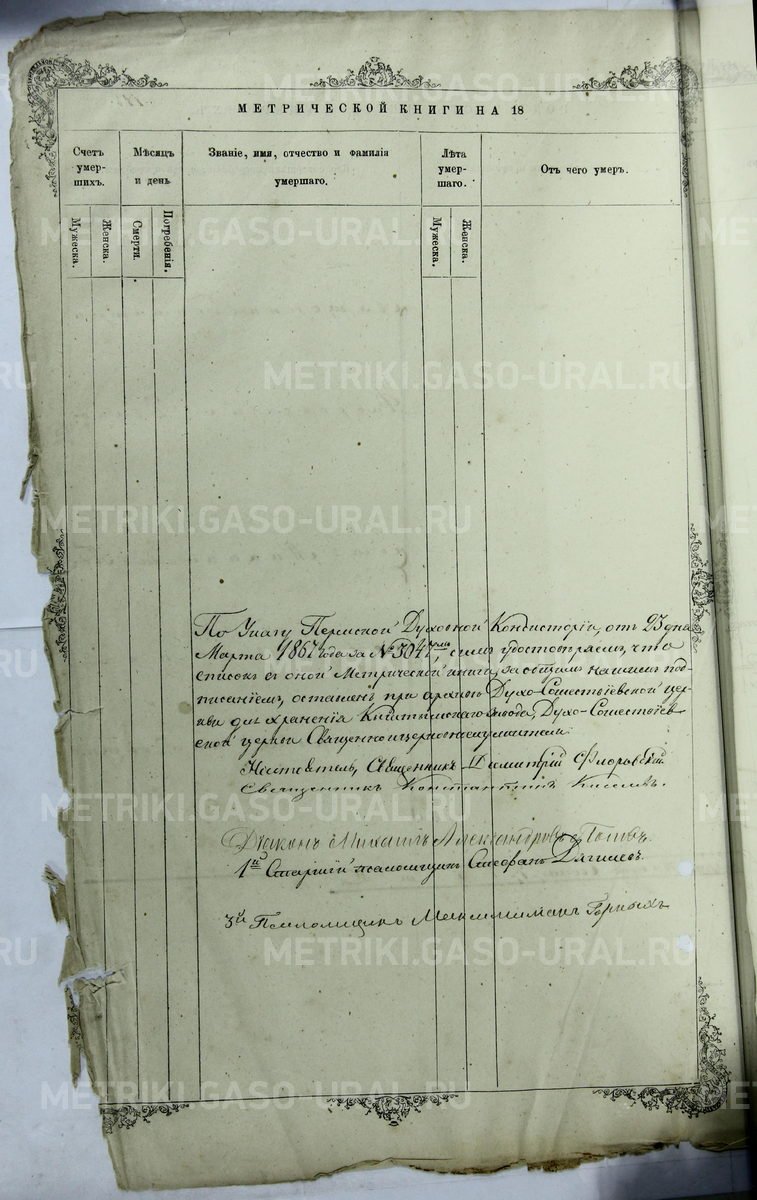 МЕТРИЧЕСКОЙ КНИГИ НА 18
Счетъ умер-шихъ.
Мѣсяцъ и день
Званіе, имя, отчество и фамилія умершаго.
Лѣта умер-шаго.
Отъ чего умеръ.
Мужеска.
Женска.
Смерти.
Погребенія.
Мужеска.
Женска.
По Указу Пермской Духовной Консисторіи, отъ 23 дня
Марта 1867 года за № 3047мъ симъ удостовѣряемъ, что
списокъ съ оной Метрической книги, за общимъ нашимъ под-
писаніемъ, оставленъ при архивѣ Духо-Сошествіевской цер-
кви для храненія завода, Духо-Сошествіев-
ской церкви Священно и церковнослужители:
Настоятель, Священникъ Димитрій Флоровскій
Священникъ Константинъ Киселевъ.
Діаконъ Михаилъ Александровъ Поповъ.
1й Старшій псаломщикъ Стефанъ Дягилевъ.
3й Псаломщикъ Максимиліанъ Горныхъ
METRIKI.GASO-URAL.RU